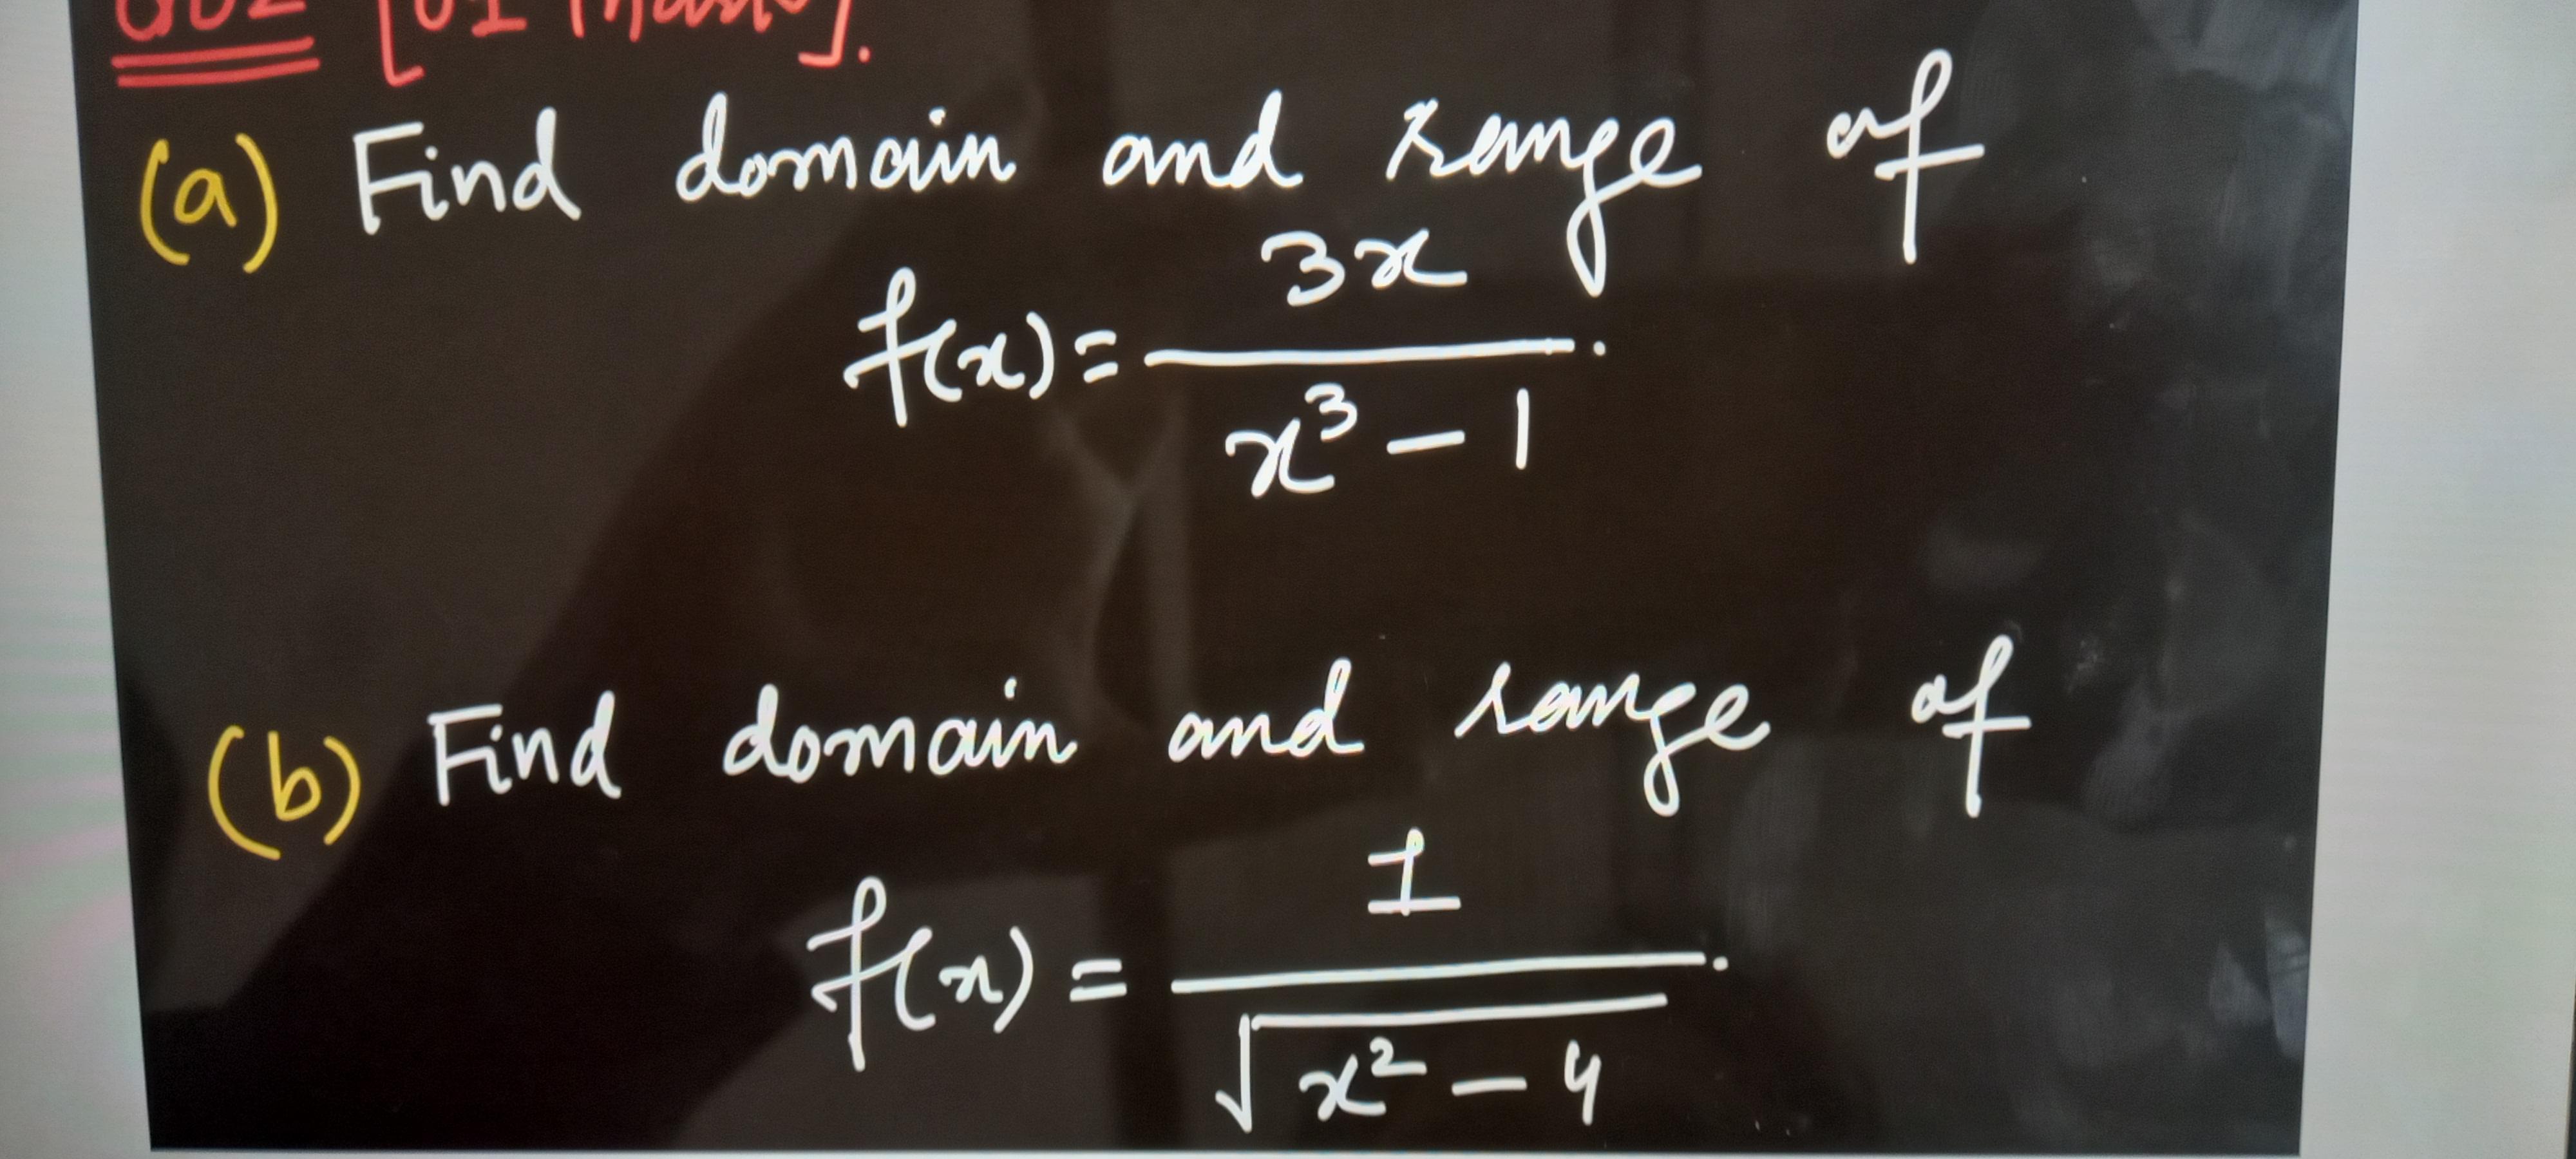 (a) Find domain and range of
f(x) = 3x / x³ - 1 .
(b) Find domain and range of
f(x) = 1 / √x² - 4 .